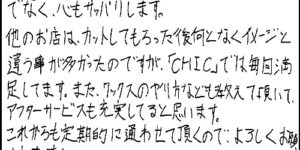 でなく、心もサッパリします。
他のお店は、カットしてもらった後何となくイメージと
違う事が多かったのですが、「CHIC」では毎回満
足してます。また、ワックスのやり方なども教えて頂いて、
アフターサービスも充実してると思います。
これからも定期的に通わせて頂くので、よろしくお願